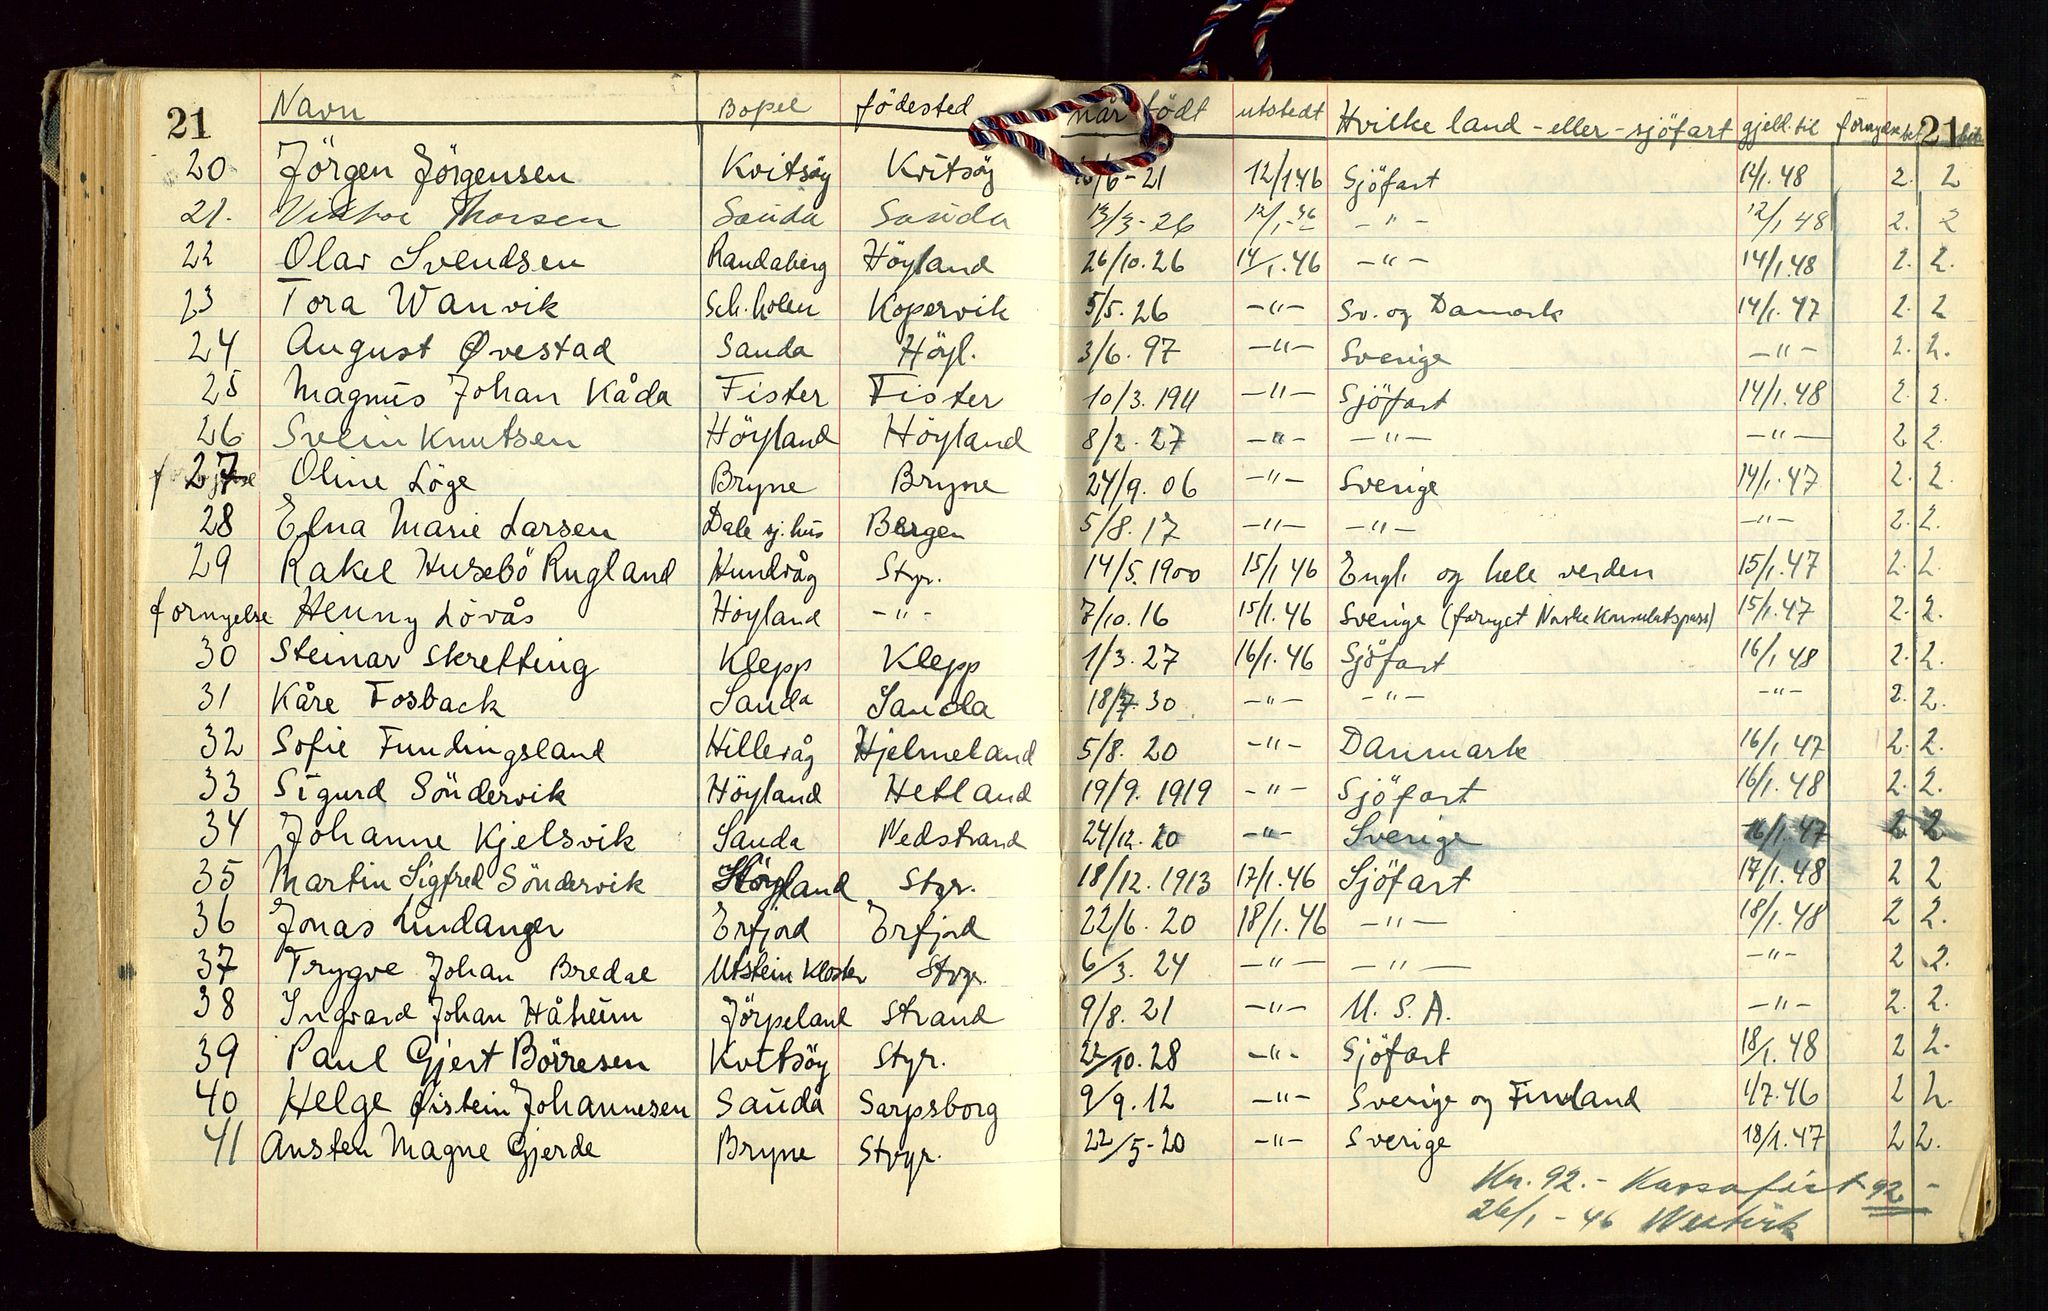 21 Navn Bopel födested når födt utstedt Hvilke land - eller - sjöfart gjell. til fornyelse bet 21
20 Jörgen Jörgensen Kvitsöy Kvitsöy /6-21 12/1.46 Sjöfart 12/1.48 2. 2
21. Viktor Thorsen Sauda Sauda 13/3-26 12/1-46 -"- 12/1 48 2. 2
22 Olav Svendsen Randaberg Höyland 26/10.26 14/1.46 -"- 14/1.48 2. 2.
23 Tora Wanvik Sch.holen Kopervik 5/5.26 -"- Sv. og Danmark 14/1.47 2. 2
24 August Øvestad Sauda Höyl. 3/6.97 -"- Sverige -"- 2. 2.
25 Magnus Johan Kåda Fister Fister 10/3.1911 -"- Sjöfart 14/1.48 2. 2.
26 Svein Knutsen Höyland Höyland 8/2.27 -"- -"- -"- 2 2.
27 Oline Löge Bryne Bryne 24/9.06 -"- Sverige 14/1.47 2. 2.
28 Elna Marie Larsen Dale sj.hus Bergen 5/8.17 -"- -"- -"- 2. 2.
29 Rakel Husebö Rugland Hundvåg Stgr. 14/5.1900 15/1 46 Engl. og hele verden 15/1.47 2. 2.
fornyelse Henny Lövås Höyland -"- 7/10.16 15/1.46 Sverige (fornyet Norske Konsulatspass) 15/1.47 2. 2.
30 Steinar Skretting Klepp Klepp 1/3.27 16/1.46 Sjöfart 16/1.48 2. 2.
31 Kåre Fosback Sauda Sauda 18/7.30 -"- -"- -"- 2. 2.
32 Sofie Fundingsland Hillevåg Hjelmeland 5/8.20 -"- Danmark 16/1 47 2. 2.
33 Sigurd Söndervik Höyland Hetland 19/9.1919 -"- Sjöfart 16/1.48 2. 2.
34 Johanne Kjelsvik Sauda Nedstrand 24/12.20 -"- Sverige 16/1.47 2 2
35 Martin Sigfred Söndervik Höyland Stgr. 18/12.1913 17/1.46 Sjöfart 17/1.48 2 2
36 Jonas Lindanger Erfjord Erfjord 22/6.20 18/1.46 -"- 18/1.48 2 2.
37 Trygve Johan Bredal Utstein Kloster Stgr. 6/3.24 -"- -"- -"- 2 2.
38 Ingvard Johan Håheim Jörpeland Strand 9/8.21 -"- U.S.A. -"- 2. 2.
39 Paul Gjert Börresen Kvitsöy Stgr. 22/10.28 -"- Sjöfart 18/1.48 2 2.
40 Helge Øistein Johannesen Sauda Sarpsborg 9/9.12 -"- Sverige og Finland 1/7.46 2 2.
41 Austen Magne Gjerde Bryne Stvgr. 22/5-20 -"- Sverige 18/1.47 2 2.
Kr. 92.- Kassaført 92.-
26/1-46